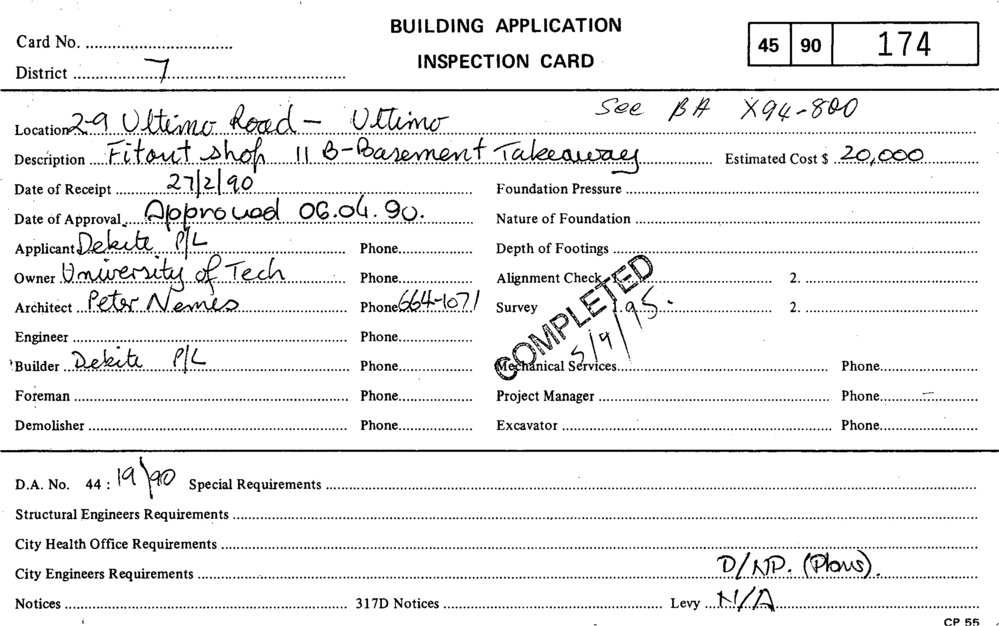 BUILDING APPLICATION
INSPECTION CARD
Card No.
45 90 174
District 7
See BA X94-800
Location 2-9 Ultimo Road - Ultimo
Description Fitout shop 11 B-Basement Takeaway Estimated Cost $ 20,000
Date of Receipt 27/2/90 Foundation Pressure
Date of Approval Approved 06.04.90. Nature of Foundation
Applicant Dekite P/L Phone Depth of Footings
Owner University of Tech Phone Alignment Check 2.
Architect Peter Nemes Phone 664-1071 Survey 2.
COMPLETED
5/9/95
Engineer Phone
Builder Dekite P/L Phone Mechanical Services Phone
Foreman Phone Project Manager Phone
Demolisher Phone Excavator Phone
D.A. No. 44 : 19/90 Special Requirements
Structural Engineers Requirements
City Health Office Requirements
City Engineers Requirements D/NP. (Plans).
Notices 317D Notices Levy N/A
CP 55